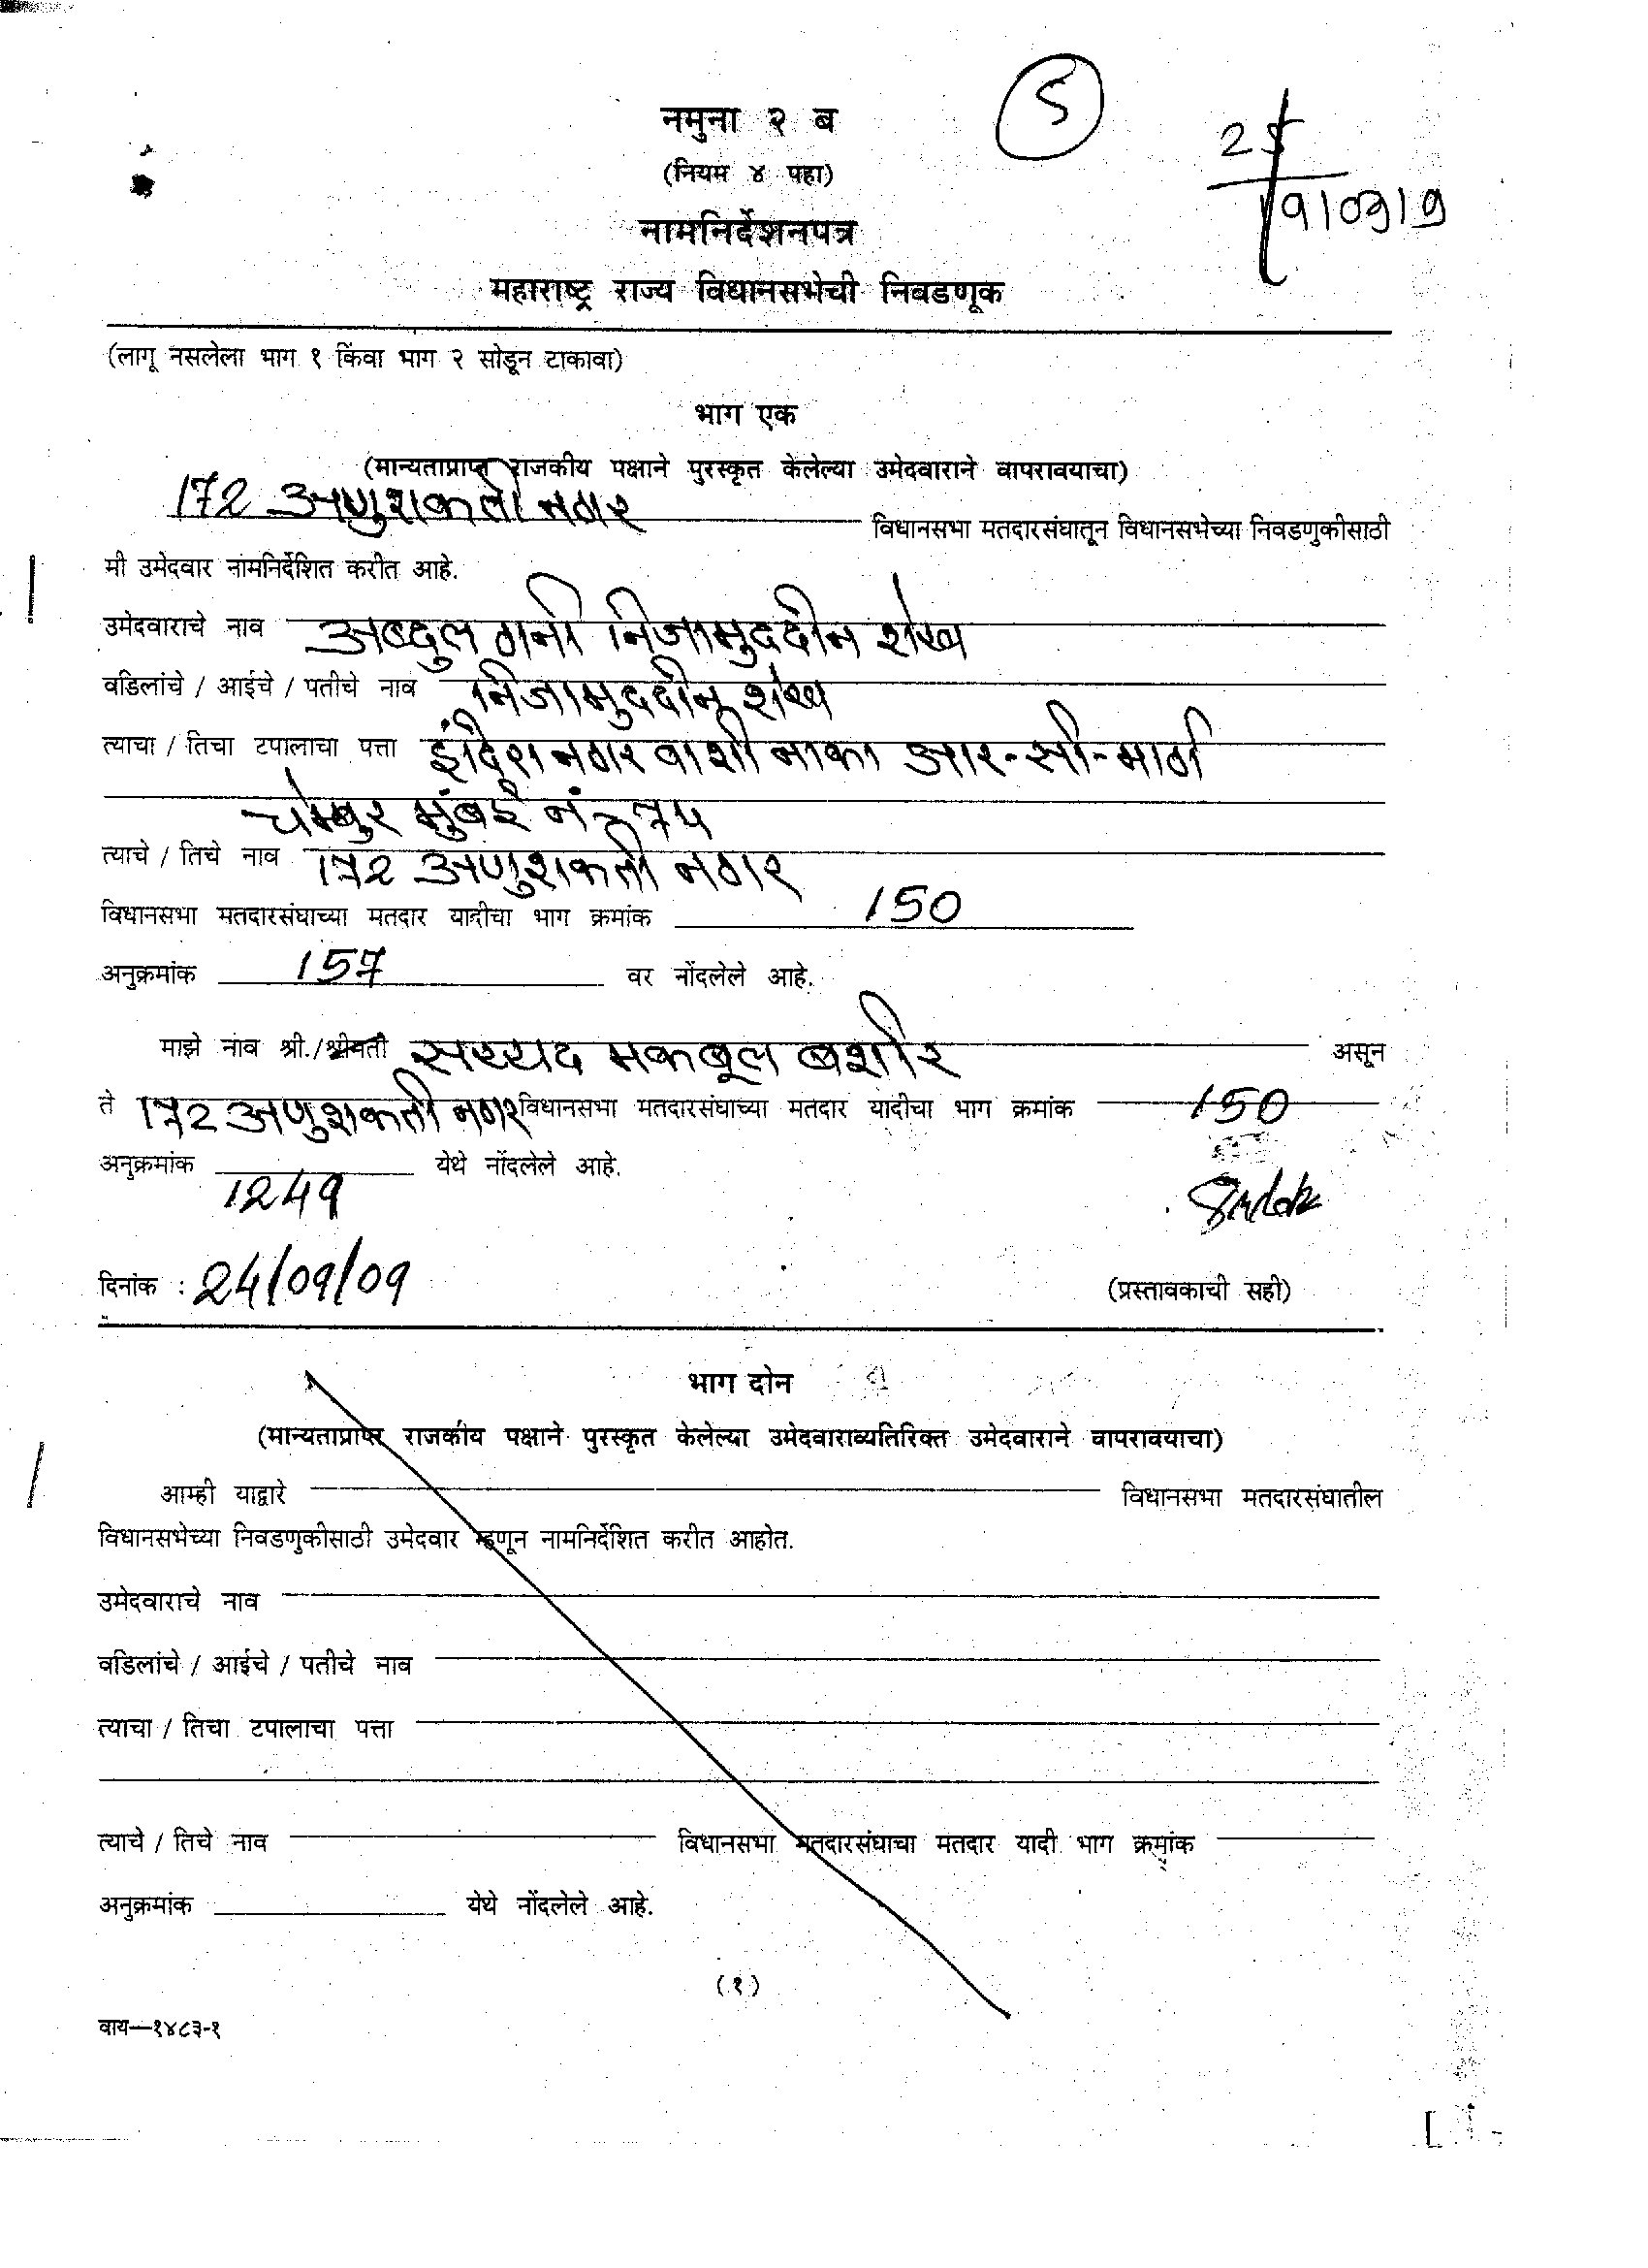 नमुना २ ब
5
25
(नियम ४ पहा)
नामनिर्देशनपत्र
महाराष्ट्र राज्य विधानसभेची निवडणूक
(लागू नसलेला भाग १ किंवा भाग २ सोडून टाकावा)
भाग एक
(मान्यताप्राप्त राजकीय पक्षाने पुरस्कृत केलेल्या उमेदवाराने वापरावयाचा)
172 अणुशकती नगर विधानसभा मतदारसंघातून विधानसभेच्या निवडणुकीसाठी
मी उमेदवार नामनिर्देशित करीत आहे.
उमेदवाराचे नाव अब्दुल गनी निजामुददीन शेख
वडिलांचे / आईचे / पतीचे नाव निजामुददीन शेख
त्याचा / तिचा टपालाचा पत्ता इंदिरा नगर वाशी नाका आर-सी-मार्ग
चेम्बुर मुंबई नं-७४
त्याचे / तिचे नाव 172 अणुशकती नगर
विधानसभा मतदारसंघाच्या मतदार यादीचा भाग क्रमांक 150
अनुक्रमांक 157 वर नोंदलेले आहे.
माझे नाव श्री./श्रीमती सय्यद मकबूल बशीर असून
ते 172 अणुशकती नगर विधानसभा मतदारसंघाच्या मतदार यादीचा भाग क्रमांक 150
अनुक्रमांक येथे नोंदलेले आहे.
1249
दिनांक : 24/09/09 (प्रस्तावकाची सही)
भाग दोन
(मान्यताप्राप्त राजकीय पक्षाने पुरस्कृत केलेल्या उमेदवाराव्यतिरिक्त उमेदवाराने वापरावयाचा)
आम्ही याद्वारे विधानसभा मतदारसंघातील
विधानसभेच्या निवडणुकीसाठी उमेदवार म्हणून नामनिर्देशित करीत आहोत.
उमेदवाराचे नाव
वडिलांचे / आईचे / पतीचे नाव
त्याचा / तिचा टपालाचा पत्ता
त्याचे / तिचे नाव विधानसभा मतदारसंघाचा मतदार यादी भाग क्रमांक
अनुक्रमांक येथे नोंदलेले आहे.
(१)
वाय—१४८३-१